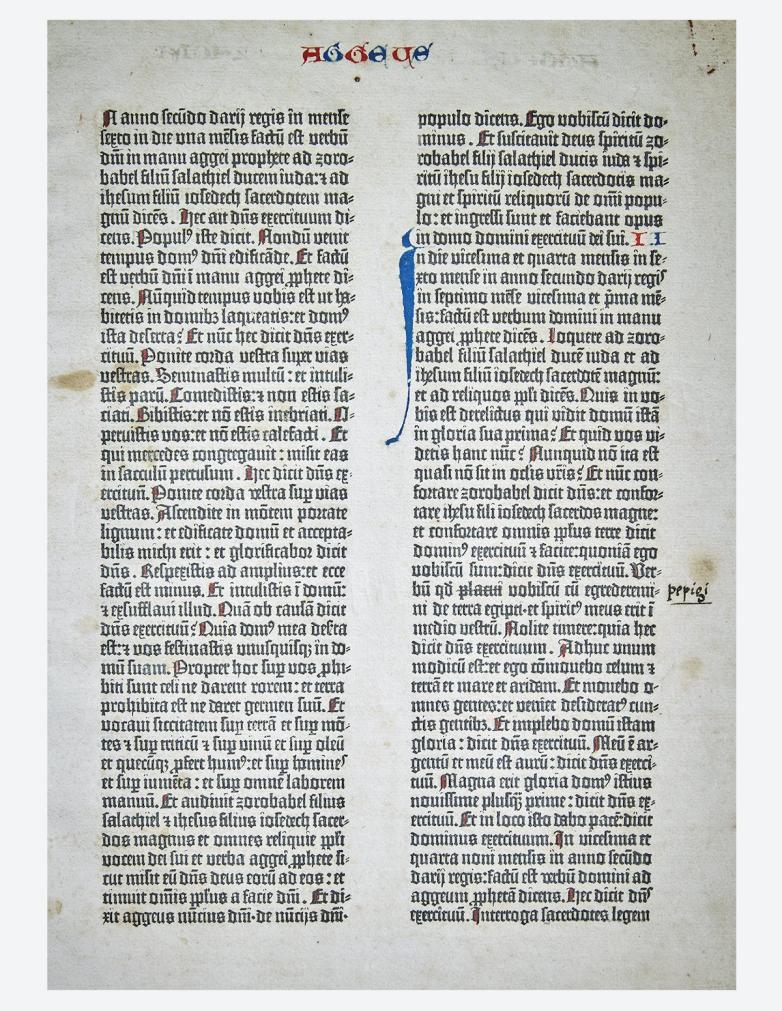 Aggeus
N anno secūdo darij regis in mense
sexto in die una mēsis factū est verbū
dn̄i in manu aggei prophete ad zoro-
babel filiū salathiel ducem iuda: ⁊ ad
ihesum filiū iosedech sacerdotem ma-
gnū dicēs. Hec ait dn̄s exercituum di-
cens. Populꝰ iste dicit. Nondū venit
tempus domꝰ dn̄i edificāde. Et factū
est verbū dn̄i ī manu aggei ꝓphete di-
cens. Nūquid tempus vobis est ut ha-
bitetis in domibꝫ laqueatis: et domꝰ
ista deserta? Et nūc hec dicit dn̄s exer-
cituū. Ponite corda vestra super vias
vestras. Seminastis multū: et intuli-
stis parū. Comedistis: ⁊ non estis sa-
ciati. Bibistis: et nō estis inebriati. O-
peruistis vos: et nō estis calefacti. Et
qui mercedes congregauit: misit eas
in sacculū pertusum. Hec dicit dn̄s ex-
ercituū. Ponite corda vestra suꝑ vias
vestras. Ascendite in mōtem portate
lignum: et edificate domū et accepta-
bilis michi erit: et glorificabor dicit
dn̄s. Respexistis ad amplius: et ecce
factū est minus. Et intulistis ī domū:
⁊ exsufflaui illud. Quā ob causā dicit
dn̄s exercituū? Quia domꝰ mea deserta
est: ⁊ vos festinastis unusquisqꝫ in do-
mū suam. Propter hoc suꝑ vos ꝓhi-
biti sunt celi ne darent rorem: et terra
prohibita est ne daret germen suū. Et
vocaui siccitatem suꝑ terrā et suꝑ mō-
tes ⁊ suꝑ triticū ⁊ suꝑ vinū et suꝑ oleū
et quecūqꝫ ꝓfert humꝰ: et suꝑ homineˢ
et suꝑ iumēta: et suꝑ omnē laborem
manuū. Et audiuit zorobabel filius
salathiel ⁊ ihesus filius iosedech sacer-
dos magnus et omnes reliquie pp̄li
vocem dei sui et verba aggei ꝓphete si-
cut misit eū dn̄s deus eorū ad eos: et
timuit om̄is pp̄lus a facie dn̄i. Et di-
xit aggeus nūcius dn̄i. de nūcijs dn̄i.
populo dicens. Ego vobiscū dicit do-
minus. Et suscitauit deus spiritū zo-
robabel filij salathiel ducis iuda ⁊ spi-
ritū ihesu filij iosedech sacerdotis ma-
gni et spiritū reliquorū de om̄i popu-
lo: et ingressi sunt et faciebant opus
in domo domini exercituū dei sui. II
In die vicesima et quarta mensis in se-
xto mense in anno secundo darij regiˢ
in septimo mēse vicesima et p̄ma mē-
sis: factū est verbum domini in manu
aggei ꝓphete dicēs. Loquere ad zoro-
babel filiū salathiel ducē iuda et ad
ihesum filiū iosedech sacerdotē magnū:
et ad reliquos pp̄li dicēs. Quis in vo-
bis est derelictus qui vidit domū istā
in gloria sua prima? Et quid vos vi-
detis hanc nūc? Nunquid nō ita est
quasi nō sit in oclis vr̄is? Et nūc con-
fortare zorobabel dicit dn̄s: et confor-
tare ihesu fili iosedech sacerdos magne:
et confortare omnis pp̄lus terre dicit
dominꝰ exercituū ⁊ facite: quoniā ego
vobiscū sum: dicit dn̄s exercituū. Ver-
bū qd̄ placui vobiscū cū egrederemi-
ni de terra egipti: et spiritꝰ meus erit ī
medio vestrū. Nolite timere: quia hec
dicit dn̄s exercituum. Adhuc unum
modicū est: et ego cōmouebo celum ⁊
terrā et mare et aridam. Et mouebo o-
mnes gentes: et veniet desideratꝰ cun-
ctis gentibꝫ. Et implebo domū istam
gloria: dicit dn̄s exercituū. Meū ē ar-
gentū et meū est aurū: dicit dn̄s exerci-
tuū. Magna erit gloria domꝰ istius
nouissime plusqꝫ prime: dicit dn̄s ex-
ercituū. Et in loco isto dabo pacē: dicit
dominus exercituum. In vicesima et
quarta noni mensis in anno secūdo
darij regis: factū est verbū domini ad
aggeum ꝓphetā dicens. Hec dicit dn̄s
exercituū. Interroga sacerdotes legem
pepigi